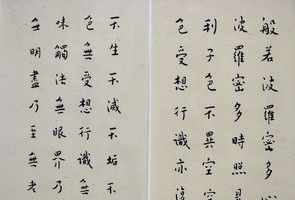 般若波羅密多心
波羅密多時照見
利子色不異空空
色受想行識亦復
不生不滅不垢不
色無受想行識無
味觸法無眼界乃
無明盡乃至無老